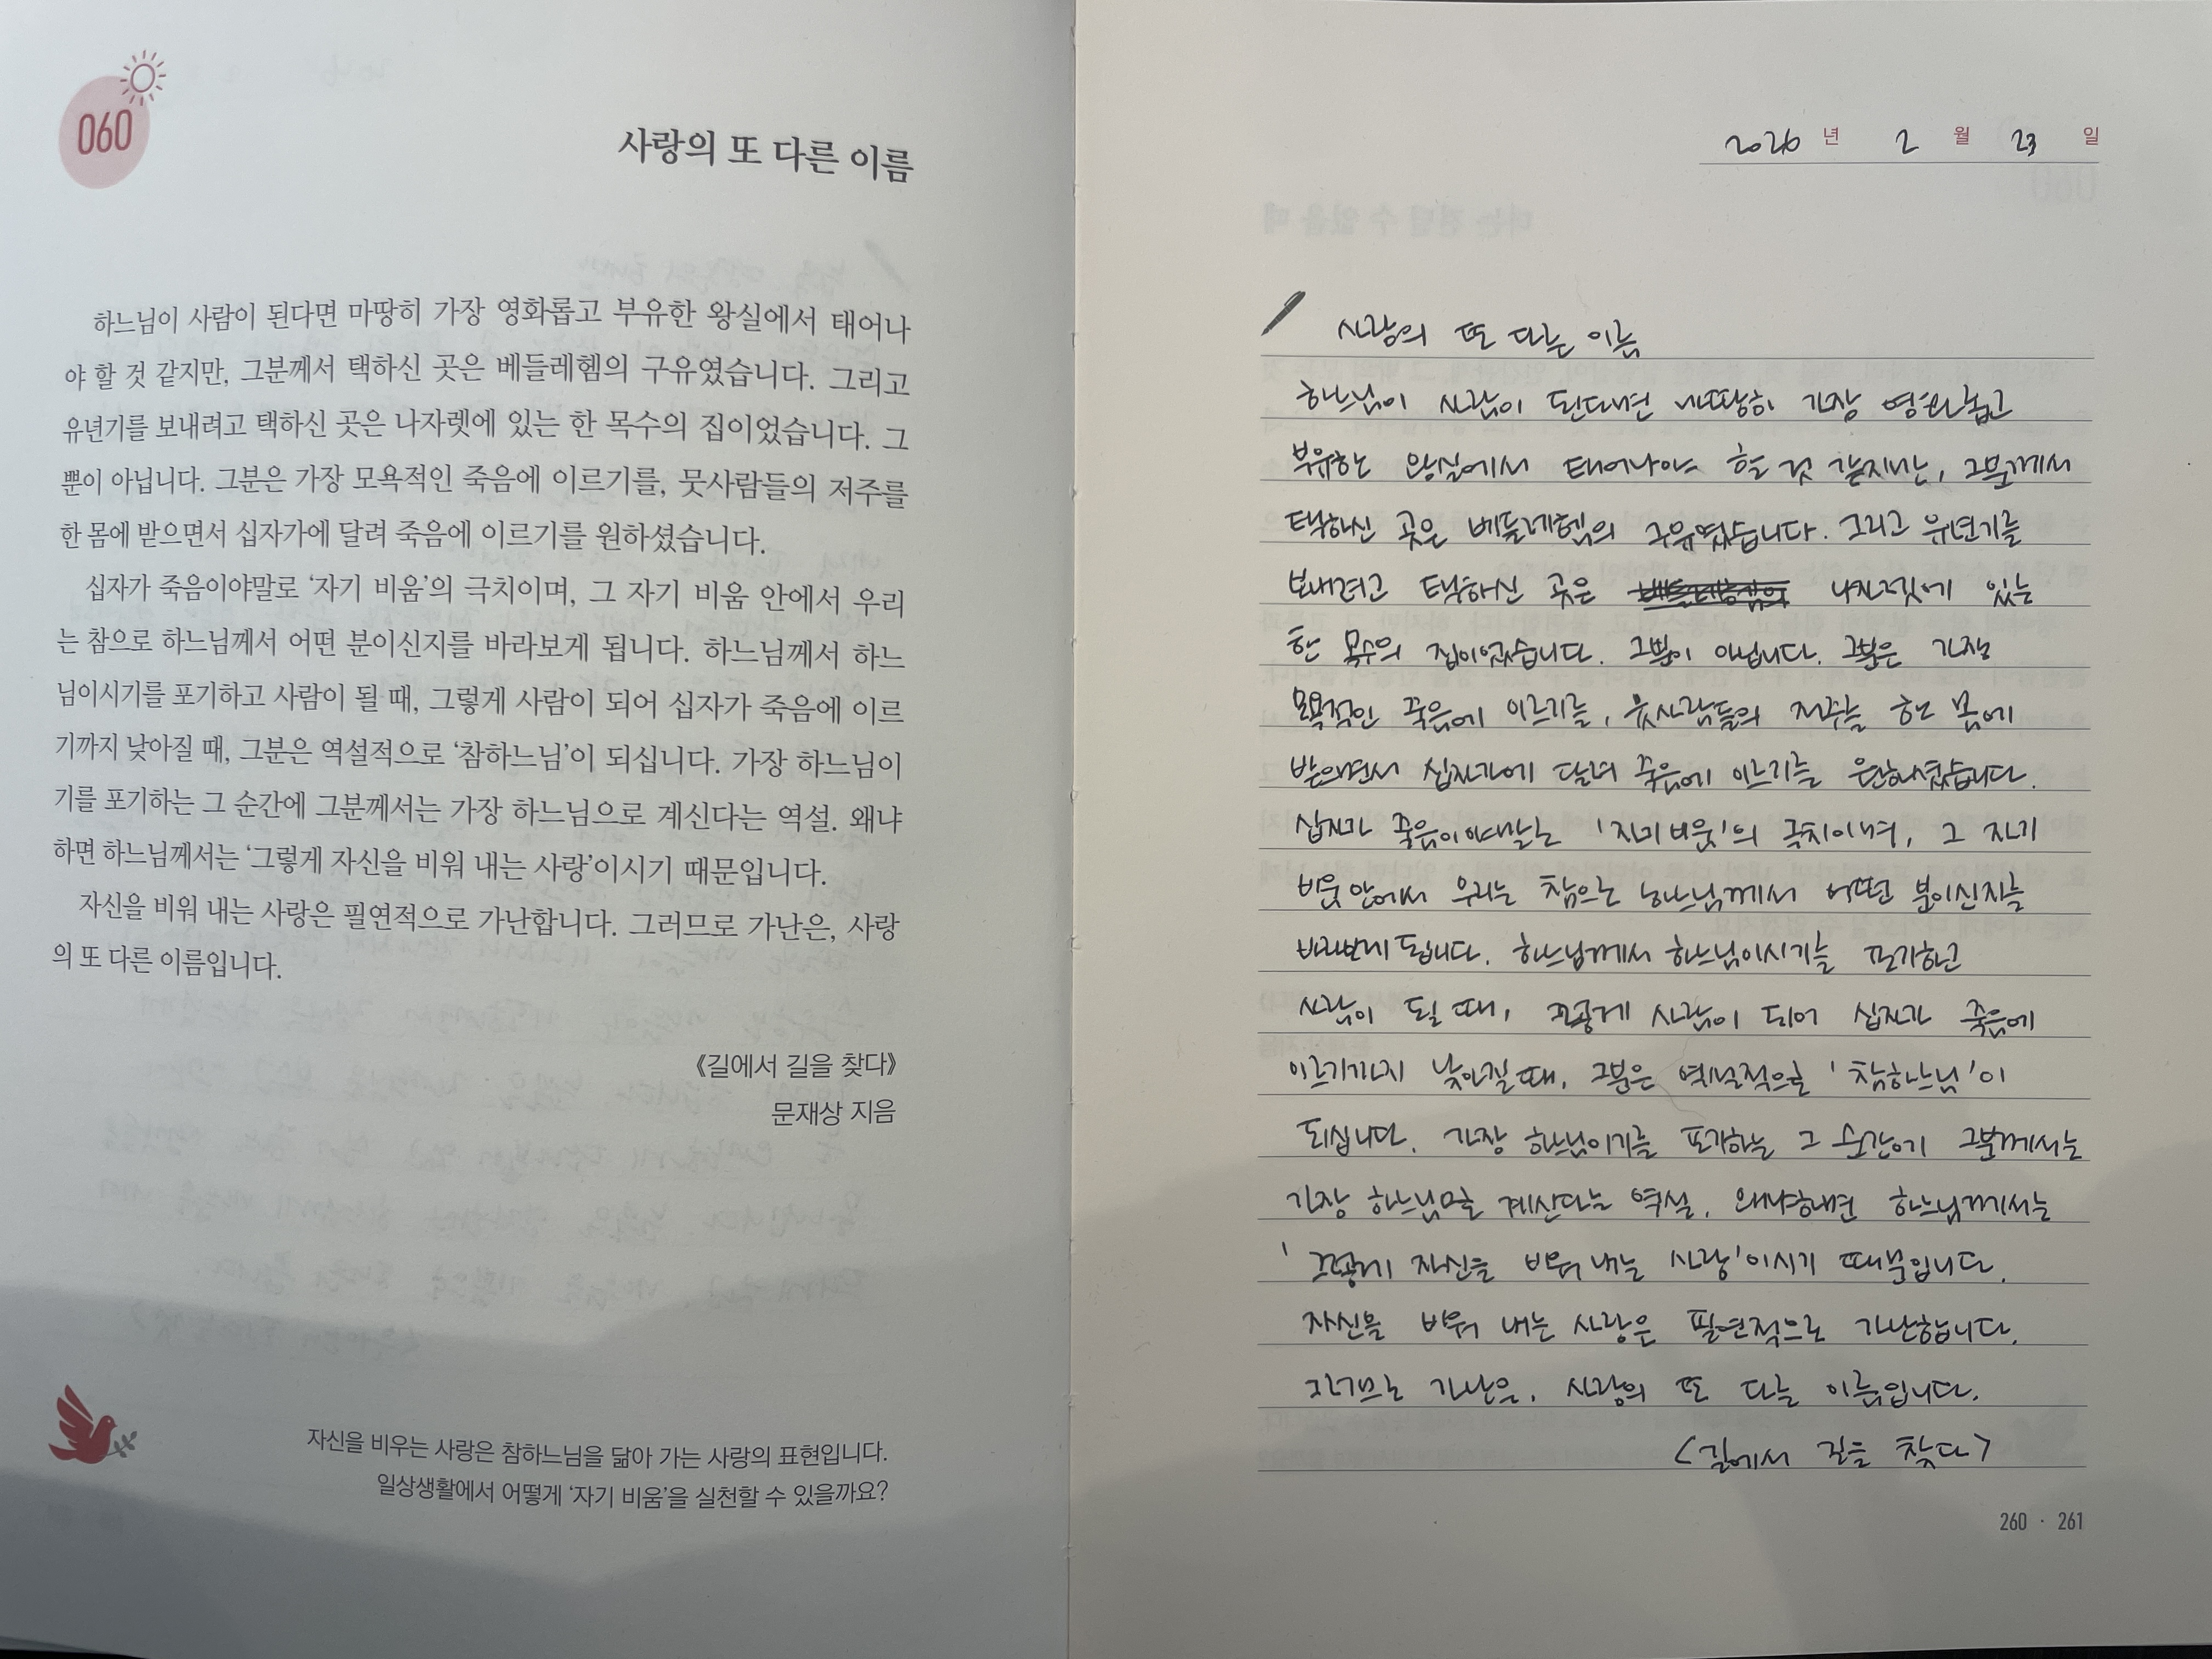 060
사랑의 또 다른 이름
하느님이 사람이 된다면 마땅히 가장 영화롭고 부유한 왕실에서 태어나
야 할 것 같지만, 그분께서 택하신 곳은 베들레헴의 구유였습니다. 그리고
유년기를 보내려고 택하신 곳은 나자렛에 있는 한 목수의 집이었습니다. 그
뿐이 아닙니다. 그분은 가장 모욕적인 죽음에 이르기를, 뭇사람들의 저주를
한 몸에 받으면서 십자가에 달려 죽음에 이르기를 원하셨습니다.
십자가 죽음이야말로 ‘자기 비움’의 극치이며, 그 자기 비움 안에서 우리
는 참으로 하느님께서 어떤 분이신지를 바라보게 됩니다. 하느님께서 하느
님이시기를 포기하고 사람이 될 때, 그렇게 사람이 되어 십자가 죽음에 이르
기까지 낮아질 때, 그분은 역설적으로 ‘참하느님’이 되십니다. 가장 하느님이
기를 포기하는 그 순간에 그분께서는 가장 하느님으로 계신다는 역설. 왜냐
하면 하느님께서는 ‘그렇게 자신을 비워 내는 사랑’이시기 때문입니다.
자신을 비워 내는 사랑은 필연적으로 가난합니다. 그러므로 가난은, 사랑
의 또 다른 이름입니다.
《길에서 길을 찾다》
문재상 지음
자신을 비우는 사랑은 참하느님을 닮아 가는 사랑의 표현입니다.
일상생활에서 어떻게 ‘자기 비움’을 실천할 수 있을까요?
2026 년 2 월 23 일
사랑의 또 다른 이름
하느님이 사람이 된다면 마땅히 가장 영화롭고
부유한 왕실에서 태어나야 할 것 같지만, 그분께서
택하신 곳은 베들레헴의 구유였습니다. 그리고 유년기를
보내려고 택하신 곳은 나자렛에 있는
한 목수의 집이었습니다. 그뿐이 아닙니다. 그분은 가장
모욕적인 죽음에 이르기를, 뭇사람들의 저주를 한 몸에
받으면서 십자가에 달려 죽음에 이르기를 원하셨습니다.
십자가 죽음이야말로 '자기 비움'의 극치이며, 그 자기
비움 안에서 우리는 참으로 하느님께서 어떤 분이신지를
바라보게 됩니다. 하느님께서 하느님이시기를 포기하고
사람이 될 때, 그렇게 사람이 되어 십자가 죽음에
이르기까지 낮아질 때, 그분은 역설적으로 '참하느님'이
되십니다. 가장 하느님이기를 포기하는 그 순간에 그분께서는
가장 하느님으로 계신다는 역설. 왜냐하면 하느님께서는
'그렇게 자신을 비워 내는 사랑'이시기 때문입니다.
자신을 비워 내는 사랑은 필연적으로 가난합니다.
그러므로 가난은, 사랑의 또 다른 이름입니다.
<길에서 길을 찾다>
260 · 261